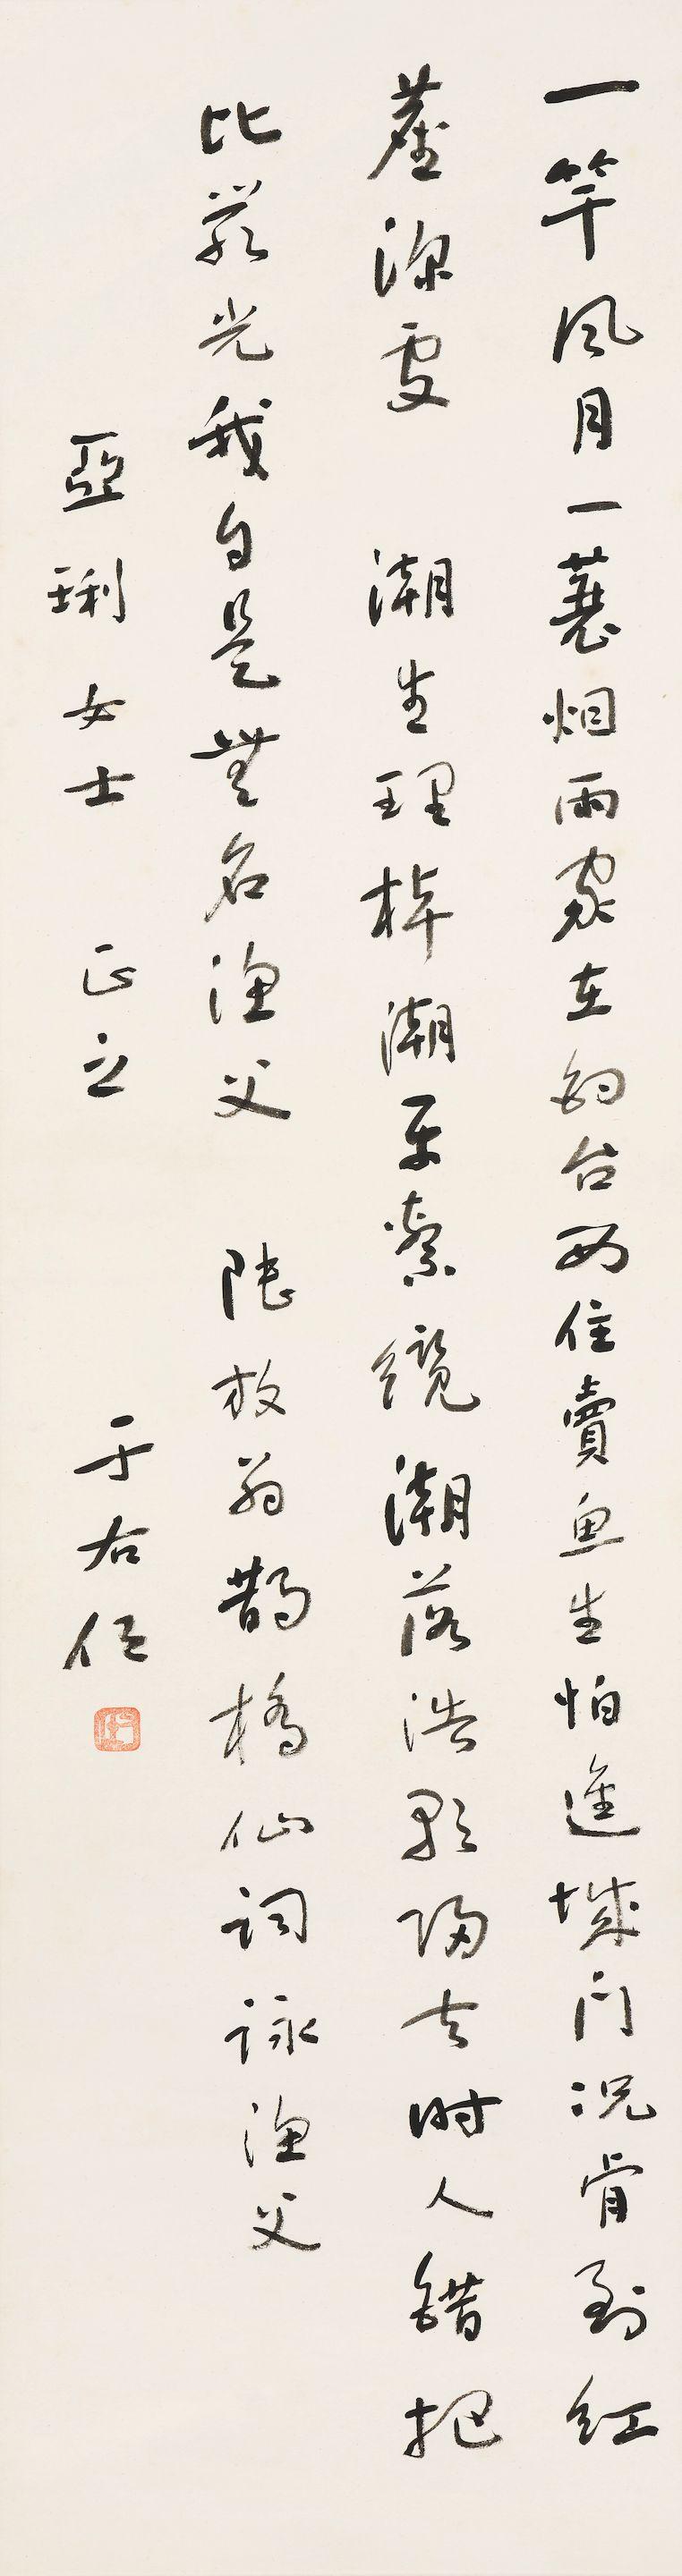 一竿風月一蓑烟雨家在釣台西住賣魚生怕進城門況肯到紅
塵深處　潮生理棹潮平繫纜潮落浩歌歸去時人錯把
比嚴光我自是無名漁父　陸放翁鵲橋仙詞詠漁父
亞琍女士　正之　于右任